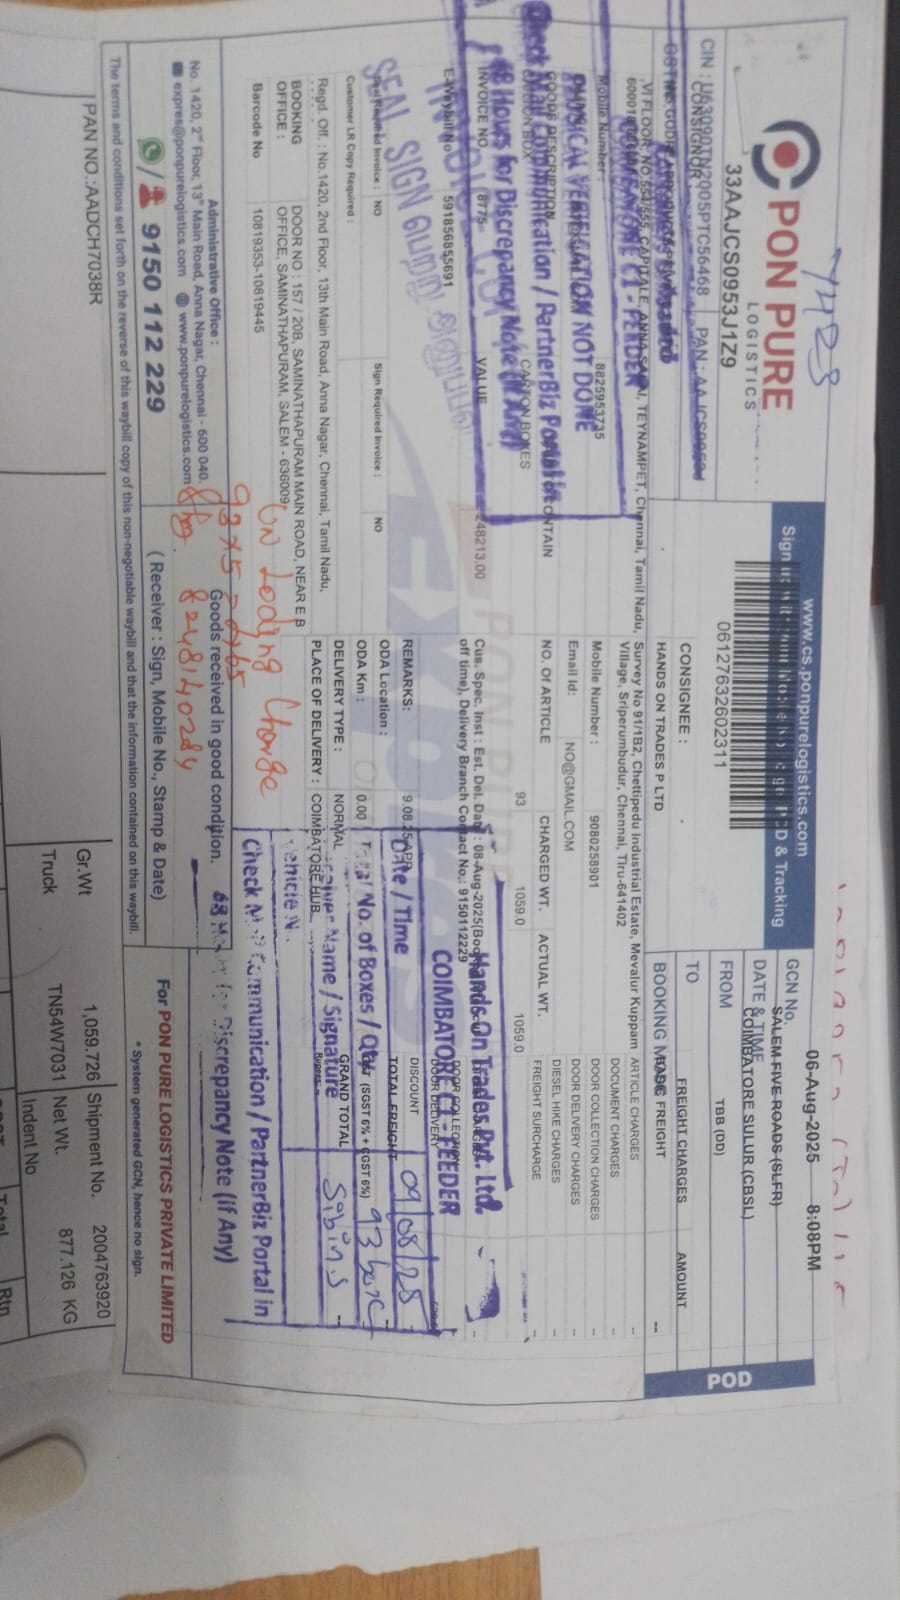 7423
PON PURE
LOGISTICS
33AAJCS0953J1Z9
CIN : U63090TN2005PTC56468 PAN : AAJCS0953J
www.cs.ponpurelogistics.com
POD & Tracking
06127632602311
06-Aug-2025 8:08PM
GCN No.
SALEM FIVE ROADS (SLFR)
DATE & TIME
COIMBATORE SULUR (CBSL)
FROM
TBB (DD)
TO
POD
CONSIGNOR
VI FLOOR, NO 554/555, CAPITALE, ANNA SALAI, TEYNAMPET, Chennai, Tamil Nadu,
Mobile Number: 8825953735
CONSIGNEE :
HANDS ON TRADES P LTD
Survey No 91/1B2, Chettipedu Industrial Estate, Mevalur Kuppam
Village, Sriperumbudur, Chennai, Tiru-641402
Mobile Number : 9080258901
Email Id: NO@GMAIL.COM
FREIGHT CHARGES AMOUNT
BOOKING
BASIC FREIGHT --
ARTICLE CHARGES -
DOCUMENT CHARGES -
DOOR COLLECTION CHARGES -
DOOR DELIVERY CHARGES -
DIESEL HIKE CHARGES -
FREIGHT SURCHARGE -
PHYSICAL VERIFICATION NOT DONE
Check Mail Communication / PartnerBiz Portal in
48 Hours for Discrepancy Note (If Any)
GOODS DESCRIPTION
CARTON BOX
CARTON BOXES
CONTAIN
NO. Of ARTICLE CHARGED WT. ACTUAL WT.
93 1059.0 1059.0
INVOICE NO. 8775- VALUE 248213.00
E-Waybill No 591856855691
Cus. Spec. Inst : Est. Del. Date : 08-Aug-2025
off time), Delivery Branch Contact No.: 9150112229
Hands On Trades Pvt. Ltd.
COIMBATORE C1 - FEEDER
SEAL SIGN
Seal Required Invoice : NO Sign Required Invoice : NO
Customer LR Copy Required :
REMARKS: 9.08.25
ODA Location :
ODA Km : 0.00
DELIVERY TYPE : NORMAL
PLACE OF DELIVERY : COIMBATORE HUB
DOOR COLLECTION
DOOR DELIVERY
DISCOUNT
TOTAL FREIGHT
(SGST 6% + CGST 6%)
GRAND TOTAL
Date / Time 09/08/25
Total No. of Boxes / Qty 93 box
Name / Signature Sibin S
Vehicle N
Check Mail Communication / PartnerBiz Portal in
Discrepancy Note (If Any)
Regd. Off. : No.1420, 2nd Floor, 13th Main Road, Anna Nagar, Chennai, Tamil Nadu,
BOOKING OFFICE : DOOR NO : 157 / 20B, SAMINATHAPURAM MAIN ROAD, NEAR E B
OFFICE, SAMINATHAPURAM, SALEM - 636009
Barcode No 10819353-10819445
Un Loding Charge
8248140284
Administrative Office :
No. 1420, 2nd Floor, 13th Main Road, Anna Nagar, Chennai - 600 040.
expres@ponpurelogistics.com www.ponpurelogistics.com
9150 112 229
Goods received in good condition.
( Receiver : Sign, Mobile No., Stamp & Date)
For PON PURE LOGISTICS PRIVATE LIMITED
* System generated GCN, hence no sign.
The terms and conditions set forth on the reverse of this waybill copy of this non-negotiable waybill and that the information contained on this waybill.
PAN NO.:AADCH7038R
Gr.Wt 1,059.726 Shipment No. 2004763920
Truck TN54W7031 Net Wt. 877.126 KG
Indent No
Total
Rtn